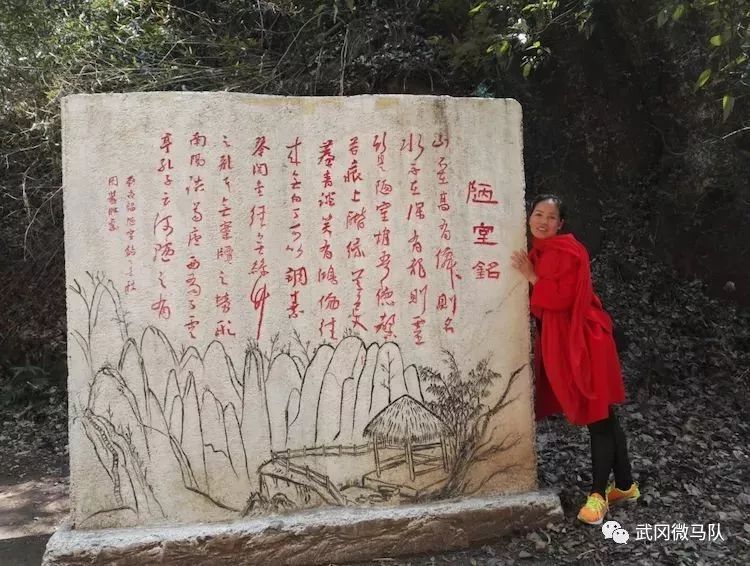 陋室銘
山不在高有僊則名
水不在深有龙則靈
斯是陋室惟吾德馨
苔痕上階绿草色入
簾青谈笑有鴻儒往
来無白丁可以調素
琴阅金经無絲竹
之乱耳無案牘之勞形
南陽诸葛庐西蜀子雲
亭孔子云何陋之有
武冈微马队